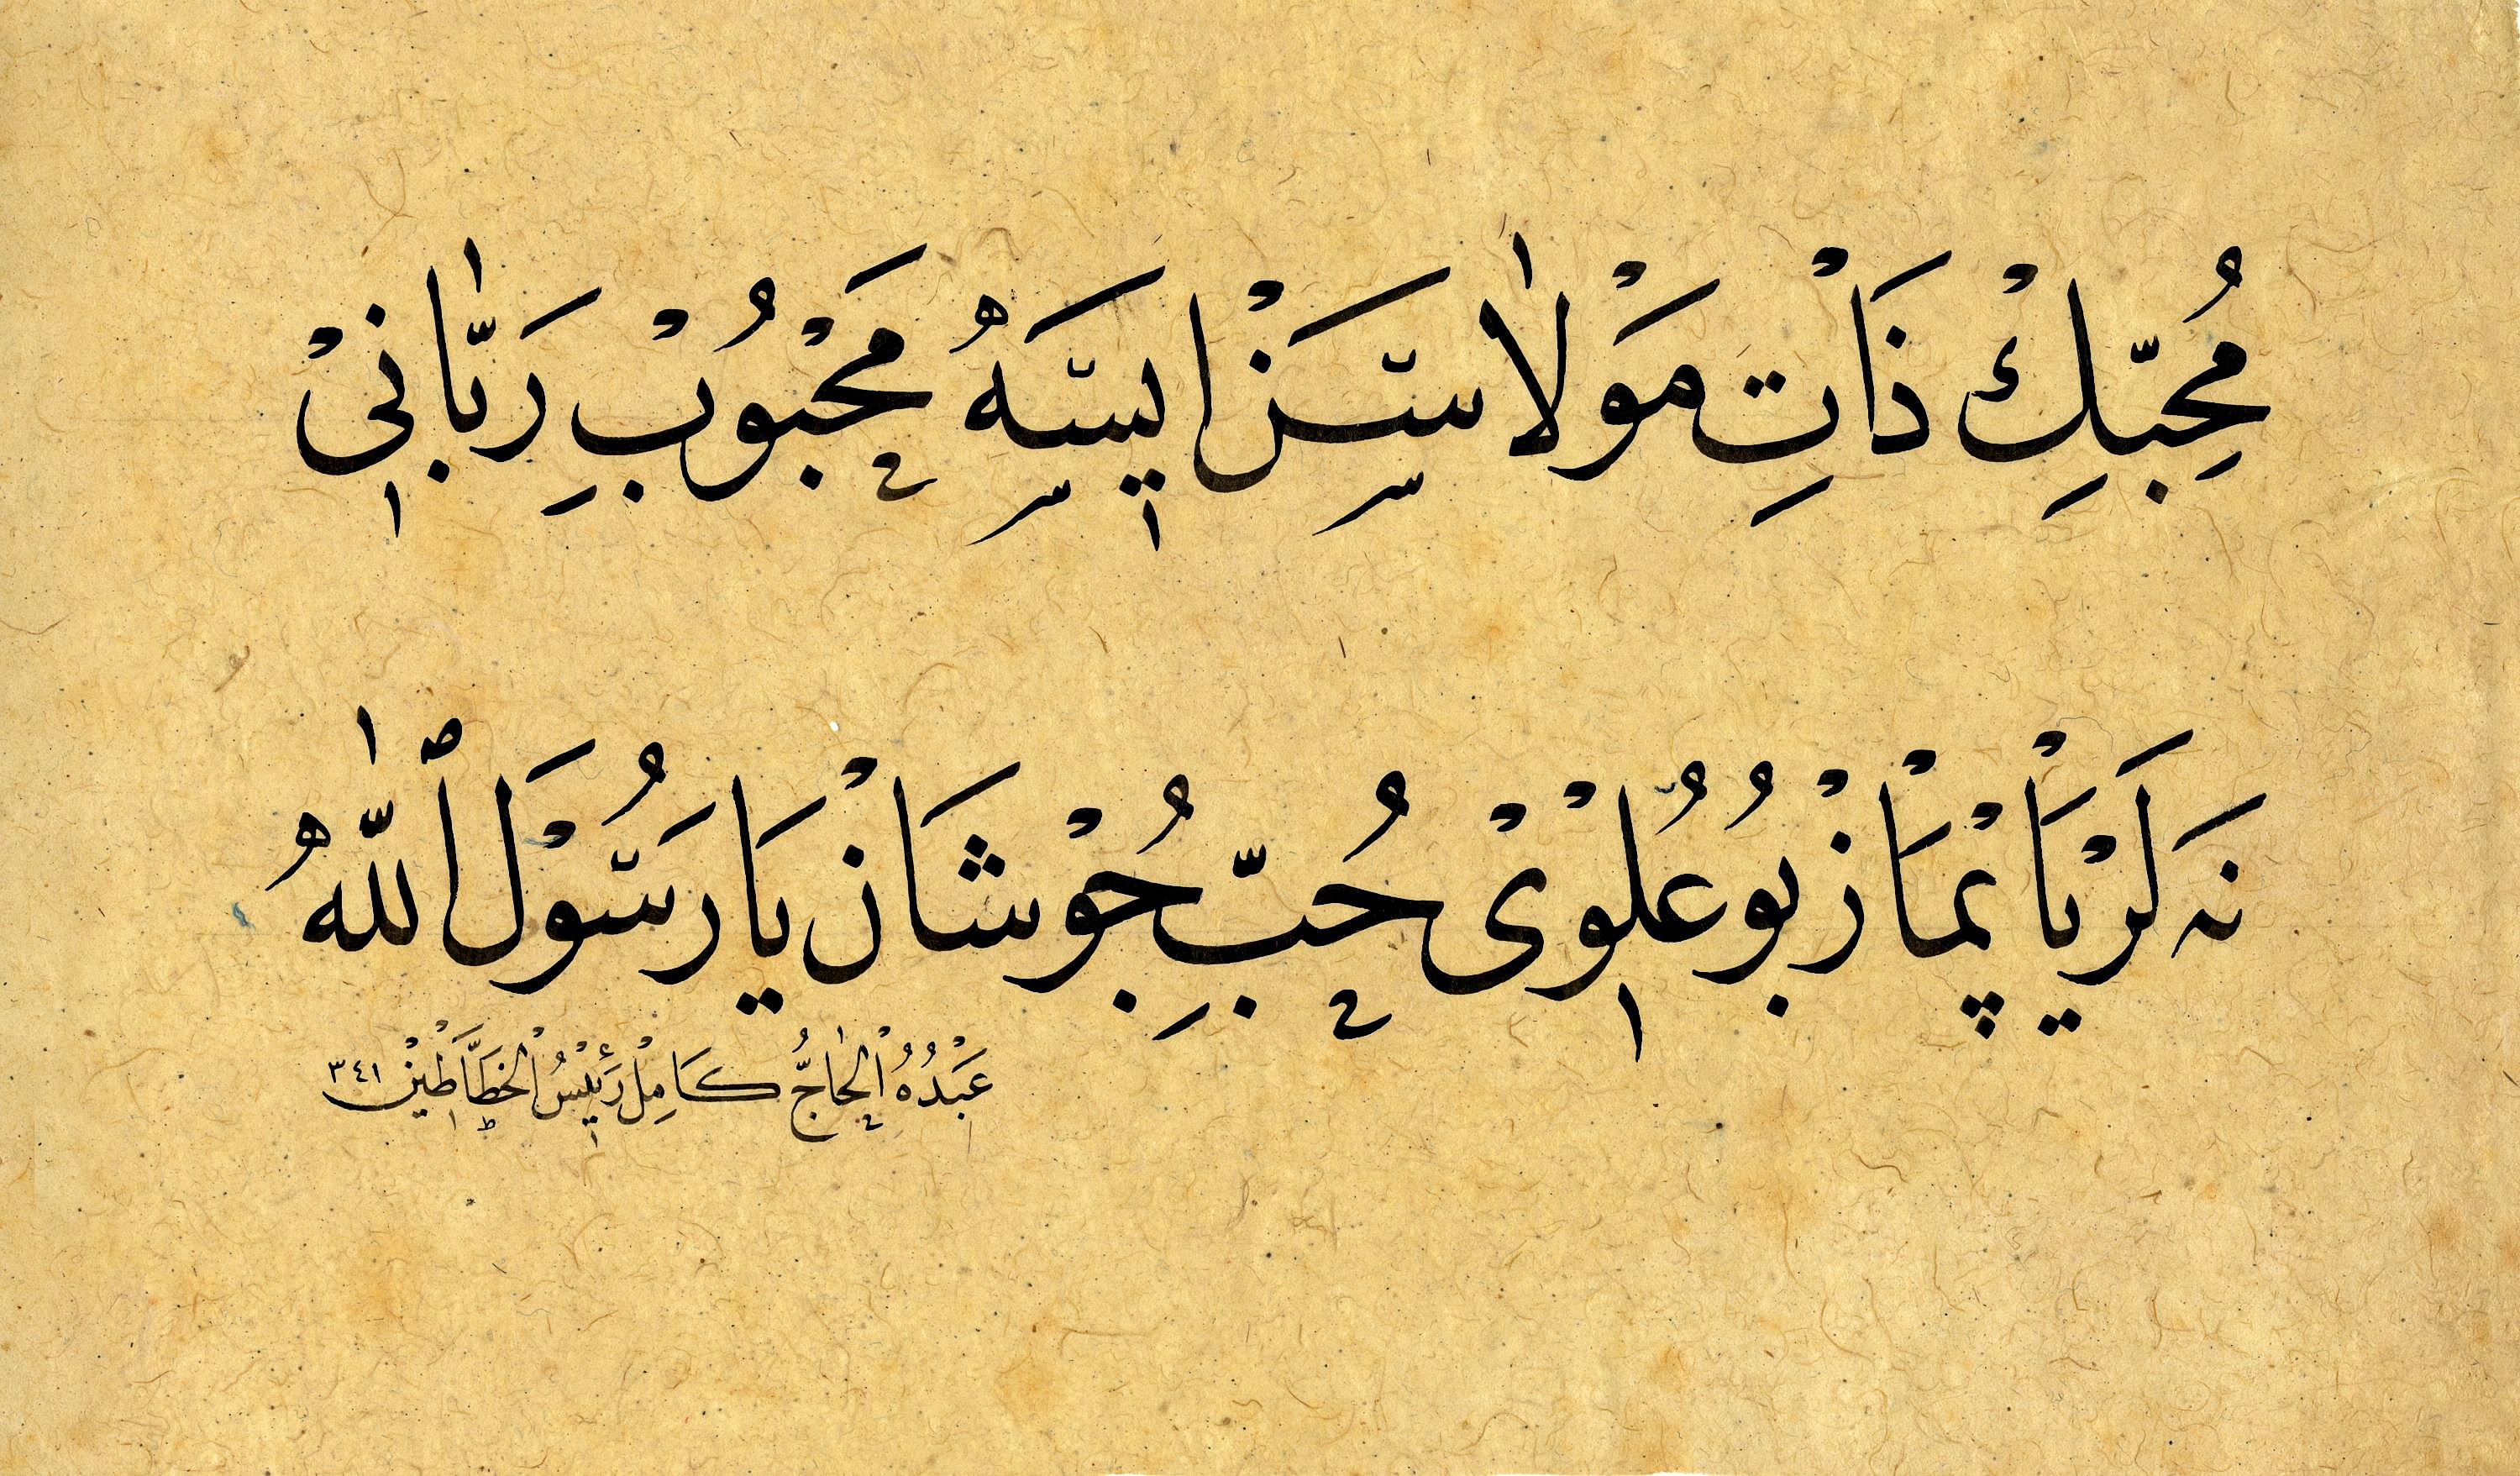 مُحِبّكِ ذَاتِ مَوْلَا سَنْ ايسَهُ مَحْبُوبْ رَبَّانِيْ
نَه لَرْ يَاپْمَازْ بُو عُلْوِيْ حُبِّ جُوْشَانْ يَا رَسُوْلَ ٱللّٰهُ
عَبْدُهُ الْحَاجُّ كَامِلْ رَئِيْسُ الْخَطَّاطِيْن ٣٤١